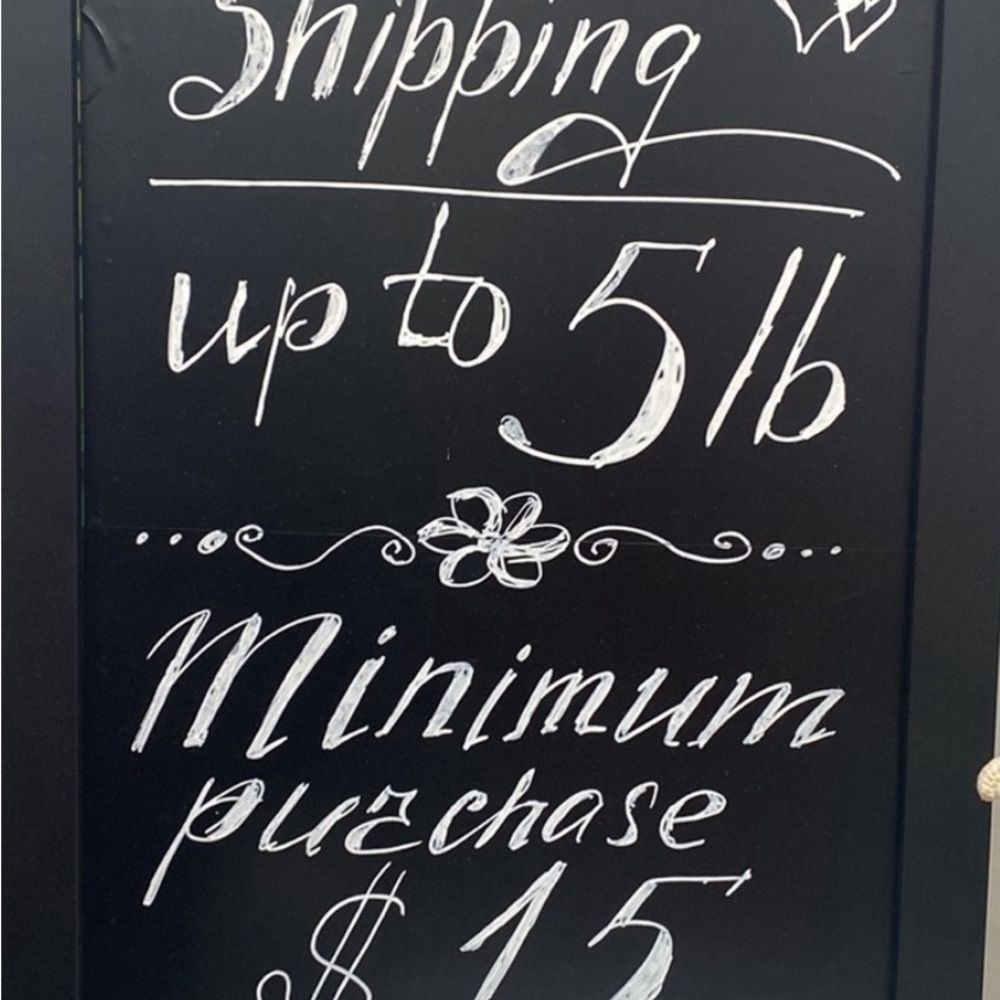 Shipping
up to 5 lb
Minimum
purchase
$15